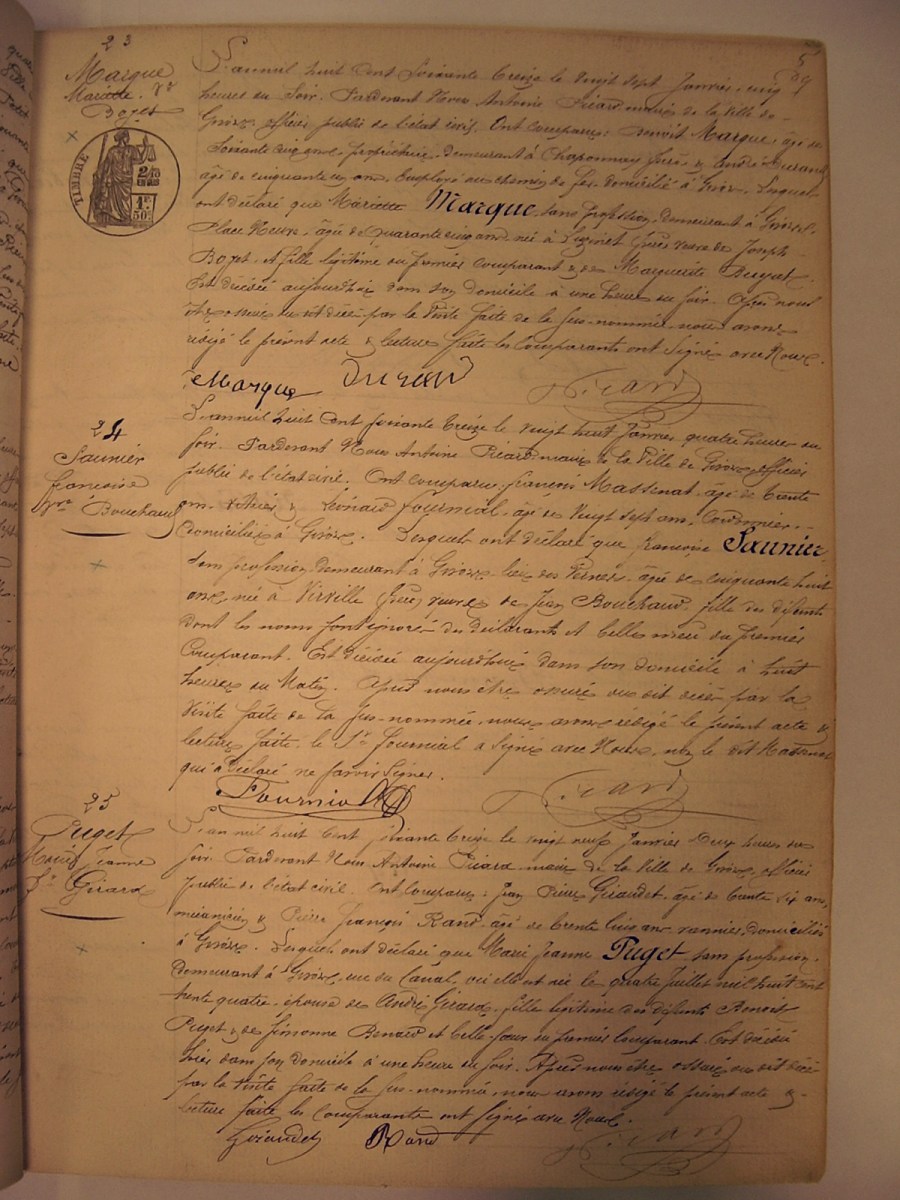 23
Marque
Mariette Vve
Bozet
TIMBRE
2/10 EN SUS
1F 50c
L'an mil huit cent soixante treize le vingt sept Janvier, cinq
heures du soir. Pardevant Nous Antoine Picard maire de la Ville de
Givors officier public de l'état civil. Ont comparu: Benoit Marque, âgé de
soixante cinq ans, propriétaire, demeurant à Chaponnay Isère, & André Durand
âgé de cinquante un ans, Employé au chemin de fer domicilié à Givors. Lesquels
ont déclaré que Mariette Marque, sans profession, demeurant à Givors,
Place Neuve, âgée de quarante cinq ans, née à Luzinet Isère veuve de Joseph
Bozet, et fille légitime du premier comparant & de Marguerite
Est décédée aujourd'hui dans son domicile à une heure du soir. Après nous
être assuré du dit décès par la Visite faite de la sus-nommée nous avons
rédigé le présent acte & lecture faite les comparants ont signé avec Nous.
Marque Durand Picard
24
Saunier
françoise
Vve Bouchaud
L'an mil huit cent soixante treize le vingt huit Janvier quatre heures du
soir. Pardevant Nous Antoine Picard maire de la Ville de Givors officier
public de l'état civil. Ont comparu françois Massenat âgé de trente
ans & Léonard Fournial âgé de Vingt sept ans, Cordonnier,
domiciliés à Givors. Lesquels ont déclaré que françoise Saunier
sans profession demeurant à Givors lieu des Vernes âgée de cinquante huit
ans, née à Virville (Isère) veuve de Jean Bouchaud, fille des défunts
dont les noms sont ignorés des déclarants et belle mère du premier
Comparant. Est décédée aujourdhui dans son domicile à huit
heures du Matin. Après nous être assuré du dit décès par la
Visite faite de la sus-nommée, nous avons rédigé le présent acte &
lecture faite, le Sr Fournial a signé avec Nous, non le dit Massenat
qui a déclaré ne savoir signer.
Fournial Picard
25
Puget
Marie Jeanne
fe Girard
L'an mil huit cent soixante treize le vingt neuf Janvier deux heures du
soir. Pardevant Nous Antoine Picard maire de la Ville de Givors, officier
public de l'état civil. Ont comparu: Jean Pierre Giraudet, âgé de trente six ans,
mécanicien & Pierre françois Rand, âgé de trente trois ans, vannier, domiciliés
à Givors. Lesquels ont déclaré que Marie Jeanne Puget sans profession
demeurant à Givors, rue du Canal, où elle est née le quatre Juillet mil huit cent
trente quatre, épouse de André Girard, fille légitime des défunts Benoit
Puget & de Simonne Benard et belle sœur du premier comparant. Est décédée
hier dans son domicile à une heure du soir. Après nous être assuré du dit décès
par la visite faite de la sus-nommée, nous avons rédigé le présent acte &
lecture faite les comparants ont signé avec Nous.
Giraudet Rand Picard